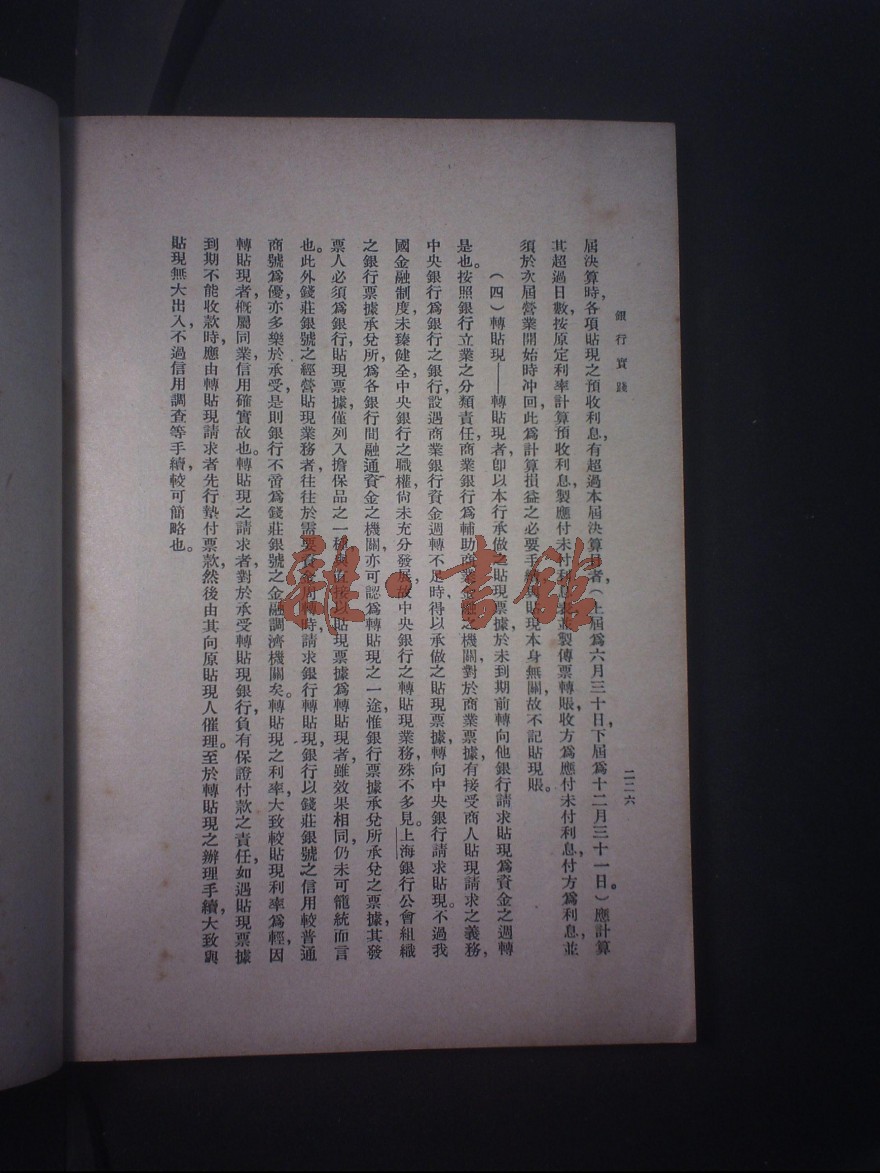 銀行實踐
二二六
屆決算時，各項貼現之預收利息，有超過本屆決算日者（上屆爲六月三十日，下屆爲十二月三十一日。）應計算
其超過日數，按原定利率計算預收利息，製應付未付利息表，並製傳票轉賬，收方爲應付未付利息，付方爲利息，並
須於次屆營業開始時冲回，此爲計算損益之必要手續，與貼現本身無關，故不記貼現賬。
（四）轉貼現——轉貼現者，卽以本行承做之貼現票據，於未到期前轉向他銀行請求貼現，爲資金之週轉
是也。按照銀行立業之分類責任，商業銀行爲輔助商業金融之機關，對於商業票據，有接受商人貼現請求之義務，
中央銀行爲銀行之銀行，設遇商業銀行資金週轉不足時，得以承做之貼現票據，轉向中央銀行請求貼現。不過我
國金融制度，未臻健全，中央銀行之職權，尙未充分發展，故中央銀行之轉貼現業務，殊不多見。上海銀行公會組織
之銀行票據承兌所，爲各銀行間融通資金之機關，亦可認爲轉貼現之一途，惟銀行票據承兌所承兌之票據，其發
票人必須爲銀行，貼現票據僅列入擔保品之一種，與直接以貼現票據爲轉貼現者，雖效果相同，仍未可籠統而言
也。此外錢莊銀號之經營貼現業務者，往往於需要資金周轉時，請求銀行轉貼現，銀行以錢莊銀號之信用較普通
商號爲優，亦多樂於承受，是則銀行不啻爲錢莊銀號之金融調濟機關矣。轉貼現之利率，大致較貼現利率爲輕，因
轉貼現者，概屬同業，信用確實故也。轉貼現之請求者，對於承受轉貼現銀行，負有保證付款之責任，如遇貼現票據
到期不能收款時，應由轉貼現請求者先行墊付票款，然後由其向原貼現人催理。至於轉貼現之辦理手續，大致與
貼現無大出入，不過信用調查等手續，較可簡略也。
雜·書館